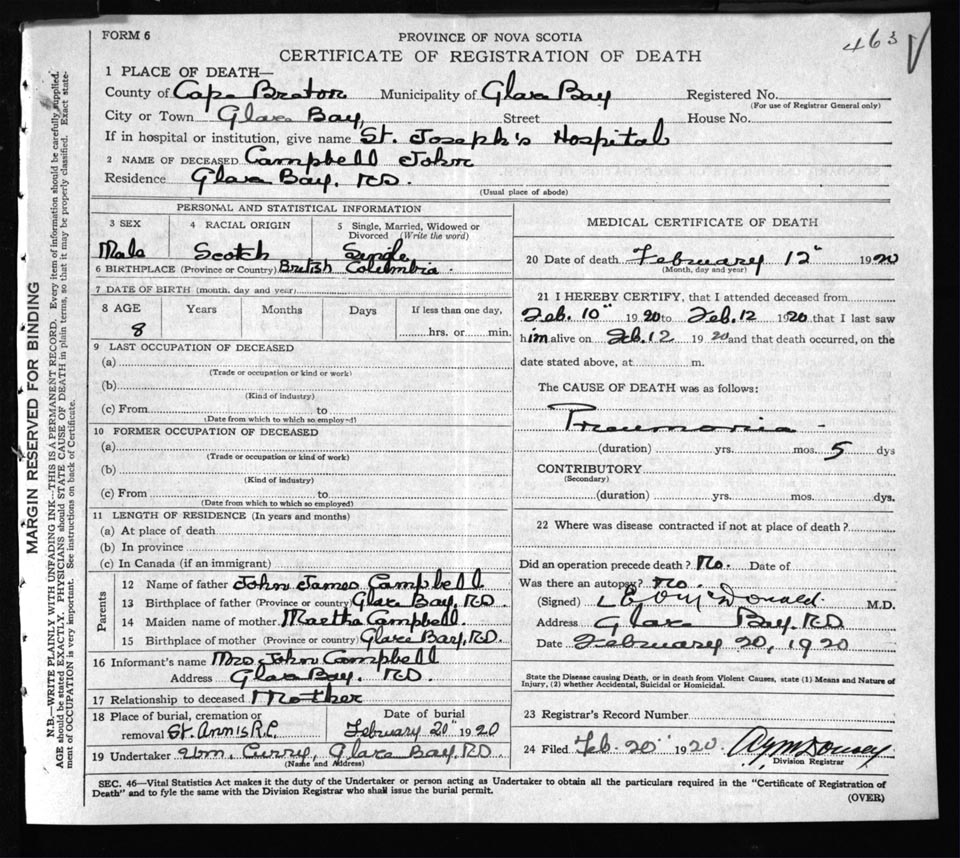 FORM 6
PROVINCE OF NOVA SCOTIA
463
CERTIFICATE OF REGISTRATION OF DEATH
1 PLACE OF DEATH—
County of Cape Breton Municipality of Glace Bay Registered No.
(For use of Registrar General only)
City or Town Glace Bay, Street House No.
If in hospital or institution, give name St. Joseph's Hospital
2 NAME OF DECEASED Campbell John
Residence Glace Bay. RD.
(Usual place of abode)
MARGIN RESERVED FOR BINDING
N.B.—WRITE PLAINLY WITH UNFADING INK—THIS IS A PERMANENT RECORD. Every item of information should be carefully supplied.
AGE should be stated EXACTLY. PHYSICIANS should STATE CAUSE OF DEATH in plain terms, so that it may be properly classified. Exact state-
ment of OCCUPATION is very important. See instructions on back of Certificate.
PERSONAL AND STATISTICAL INFORMATION
3 SEX 4 RACIAL ORIGIN 5 Single, Married, Widowed or
Divorced (Write the word)
Male Scotch Single
6 BIRTHPLACE (Province or Country) British Columbia.
7 DATE OF BIRTH (month, day and year)
8 AGE Years Months Days If less than one day,
8 hrs. or min.
9 LAST OCCUPATION OF DECEASED
(a)
(Trade or occupation or kind or work)
(b)
(Kind of industry)
(c) From to
(Date from which to which so employ-d)
10 FORMER OCCUPATION OF DECEASED
(a)
(Trade or occupation or kind of work)
(b)
(Kind of industry)
(c) From to
(Date from which to which so employed)
11 LENGTH OF RESIDENCE (In years and months)
(a) At place of death
(b) In province
(c) In Canada (if an immigrant)
Parents
12 Name of father John James Campbell
13 Birthplace of father (Province or country) Glace Bay, RD.
14 Maiden name of mother Martha Campbell.
15 Birthplace of mother (Province or country) Glace Bay, RD.
16 Informant's name Mrs John Campbell
Address Glace Bay. RD.
17 Relationship to deceased Mother
18 Place of burial, cremation or Date of burial
removal St. Ann's R.C. February 20" 1920
19 Undertaker Wm. Curry, Glace Bay. RD
(Name and Address)
MEDICAL CERTIFICATE OF DEATH
20 Date of death February 12" 1920
(Month, day and year)
21 I HEREBY CERTIFY, that I attended deceased from
Feb. 10" 1920 to Feb. 12 1920 that I last saw
him alive on Feb. 12 1920 and that death occurred, on the
date stated above, at m.
The CAUSE OF DEATH was as follows:
Pneumonia -
(duration) yrs. mos. 5 dys
CONTRIBUTORY
(Secondary)
(duration) yrs. mos. dys.
22 Where was disease contracted if not at place of death?
Did an operation precede death? No. Date of
Was there an autopsy? No.
(Signed) McDonald M.D.
Address Glace Bay. RD
Date February 20, 1920
State the Disease causing Death, or in death from Violent Causes, state (1) Means and Nature of
Injury, (2) whether Accidental, Suicidal or Homicidal.
23 Registrar's Record Number
24 Filed Feb. 20" 1920
Division Registrar
SEC. 46—Vital Statistics Act makes it the duty of the Undertaker or person acting as Undertaker to obtain all the particulars required in the "Certificate of Registration of
Death" and to fyle the same with the Division Registrar who shall issue the burial permit.
(OVER)